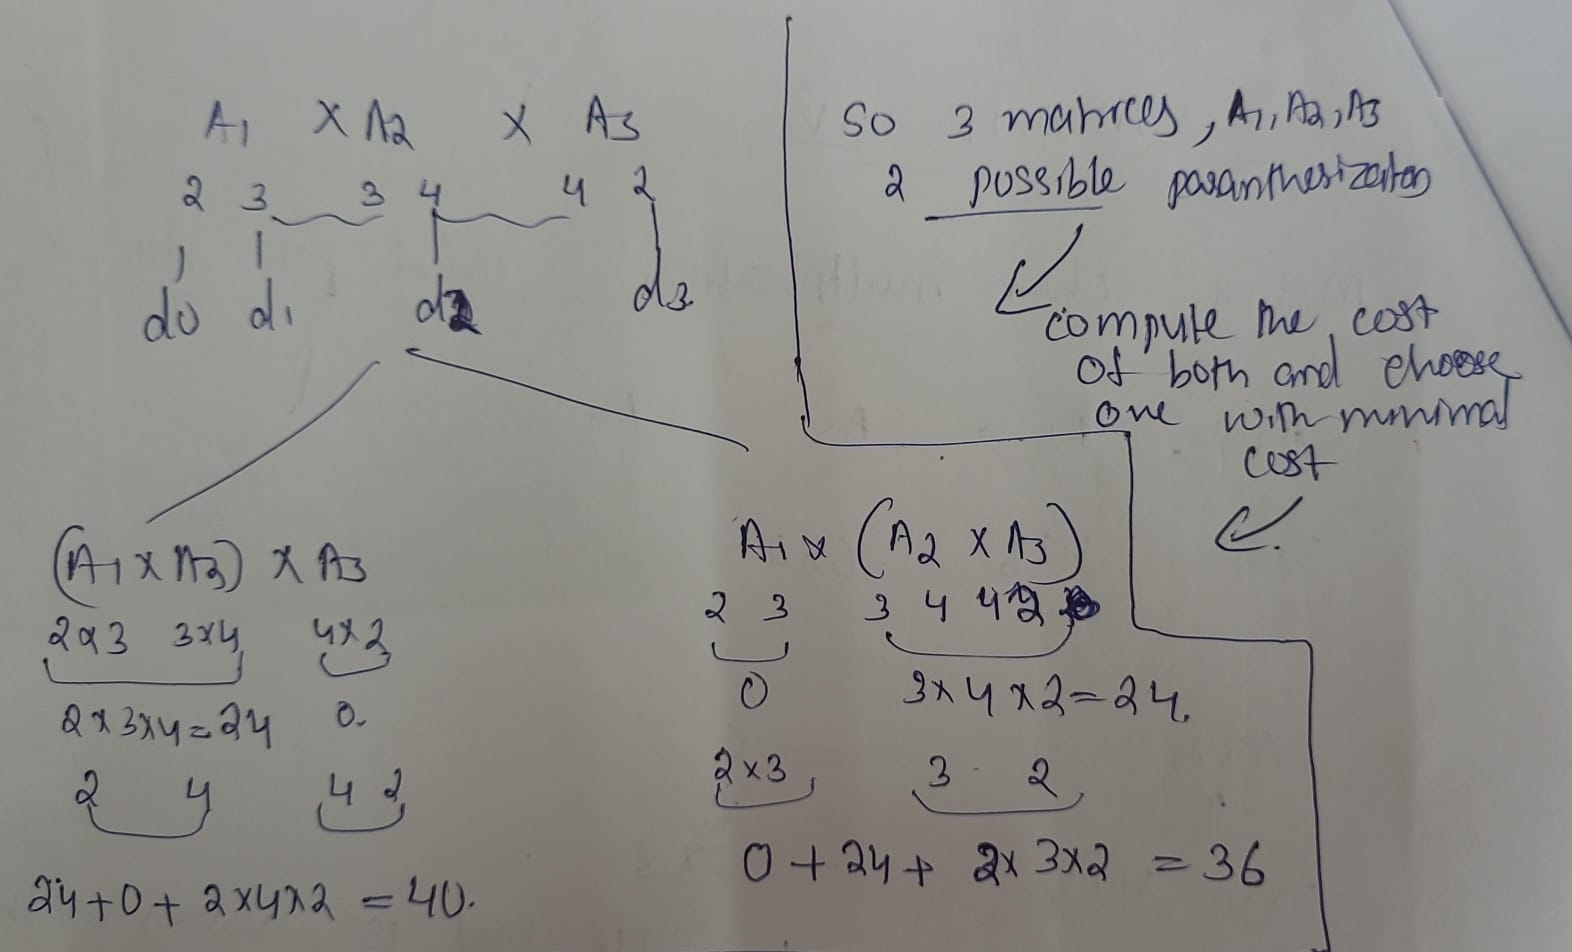 A1 X A2 X A3
2 3 3 4 4 2
d0 d1 d2 d3
So 3 matrices, A1, A2, A3
2 possible paranthesizaiton
compute the cost
of both and choose
one with minimal
cost
(A1 x A2) X A3
2x3 3x4 4x2
2x3x4=24 0.
2 4 4 2
24+0+ 2x4x2 = 40.
A1 x (A2 x A3)
2 3 3 4 4 2
0 3x4x2=24.
2x3 3 2
0+24+ 2x3x2 = 36